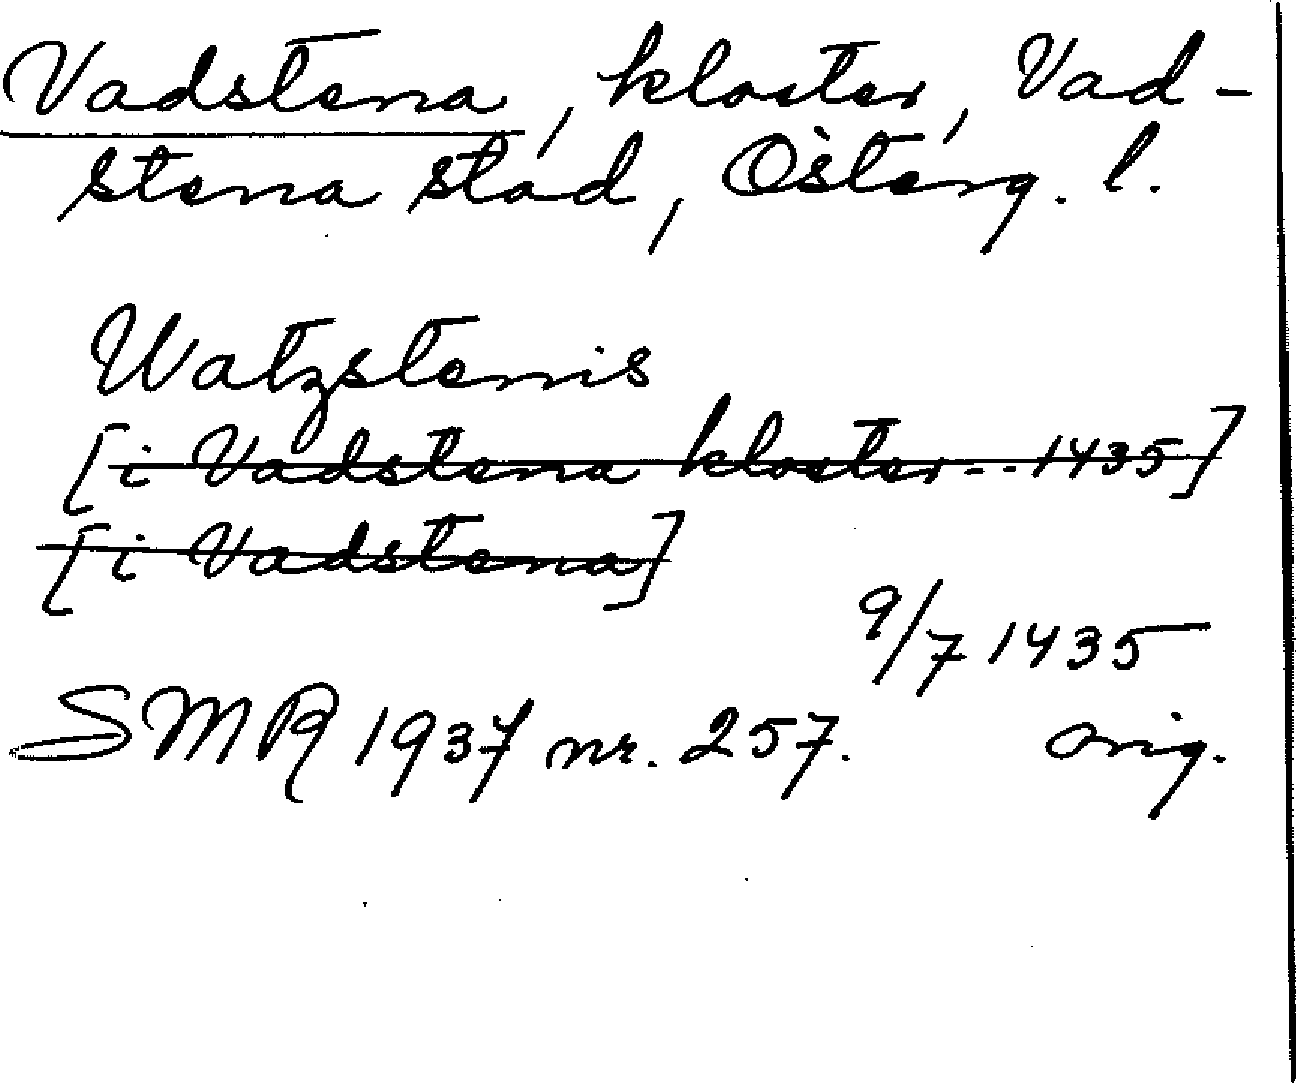 Vadstena, kloster, Vad-
stena stad, Österg. l.
Watzstenis
[i Vadstena kloster--1435]
[i Vadstena]
9/7 1435
SMR 1937 nr. 257. orig.